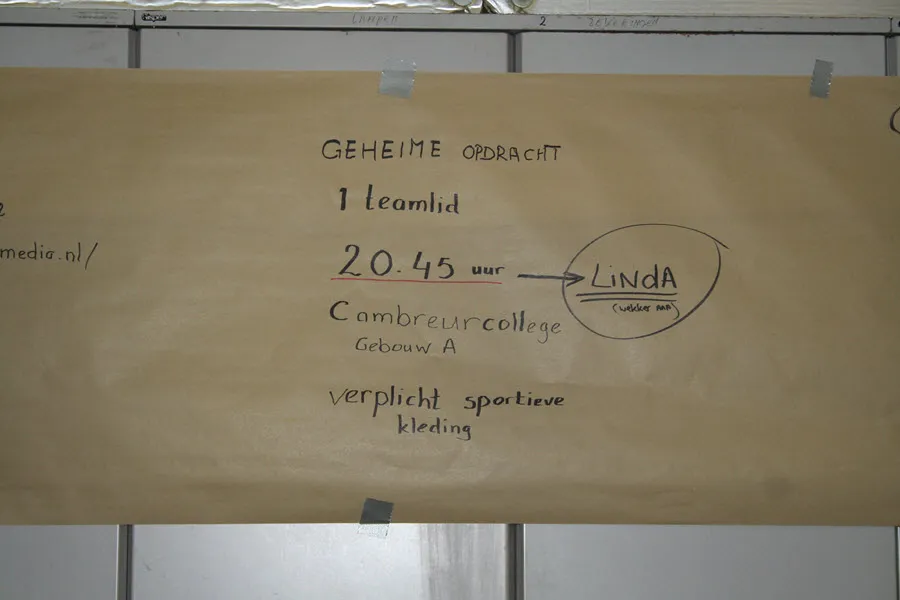 2
GEHEIME OPDRACHT
1 teamlid
media.nl/
20.45 uur → LiNdA
(wekker AAN)
Cambreurcollege
Gebouw A
verplicht sportieve
kleding